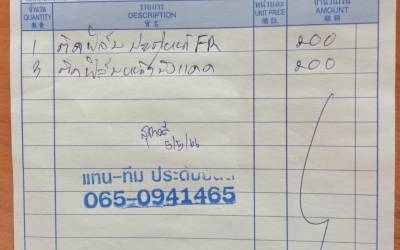 จำนวน รายการ หน่วยละ จำนวนเงิน
QUANTITY DESCRIPTION UNIT PRICE AMOUNT
數量 貨名 備註 銀額
1 ติดฟิล์ม ประตูหน้า FR 200
3 ติดฟิล์ม 200
5/5/66
แทน-ทีม ประดับยนต์
065-0941465